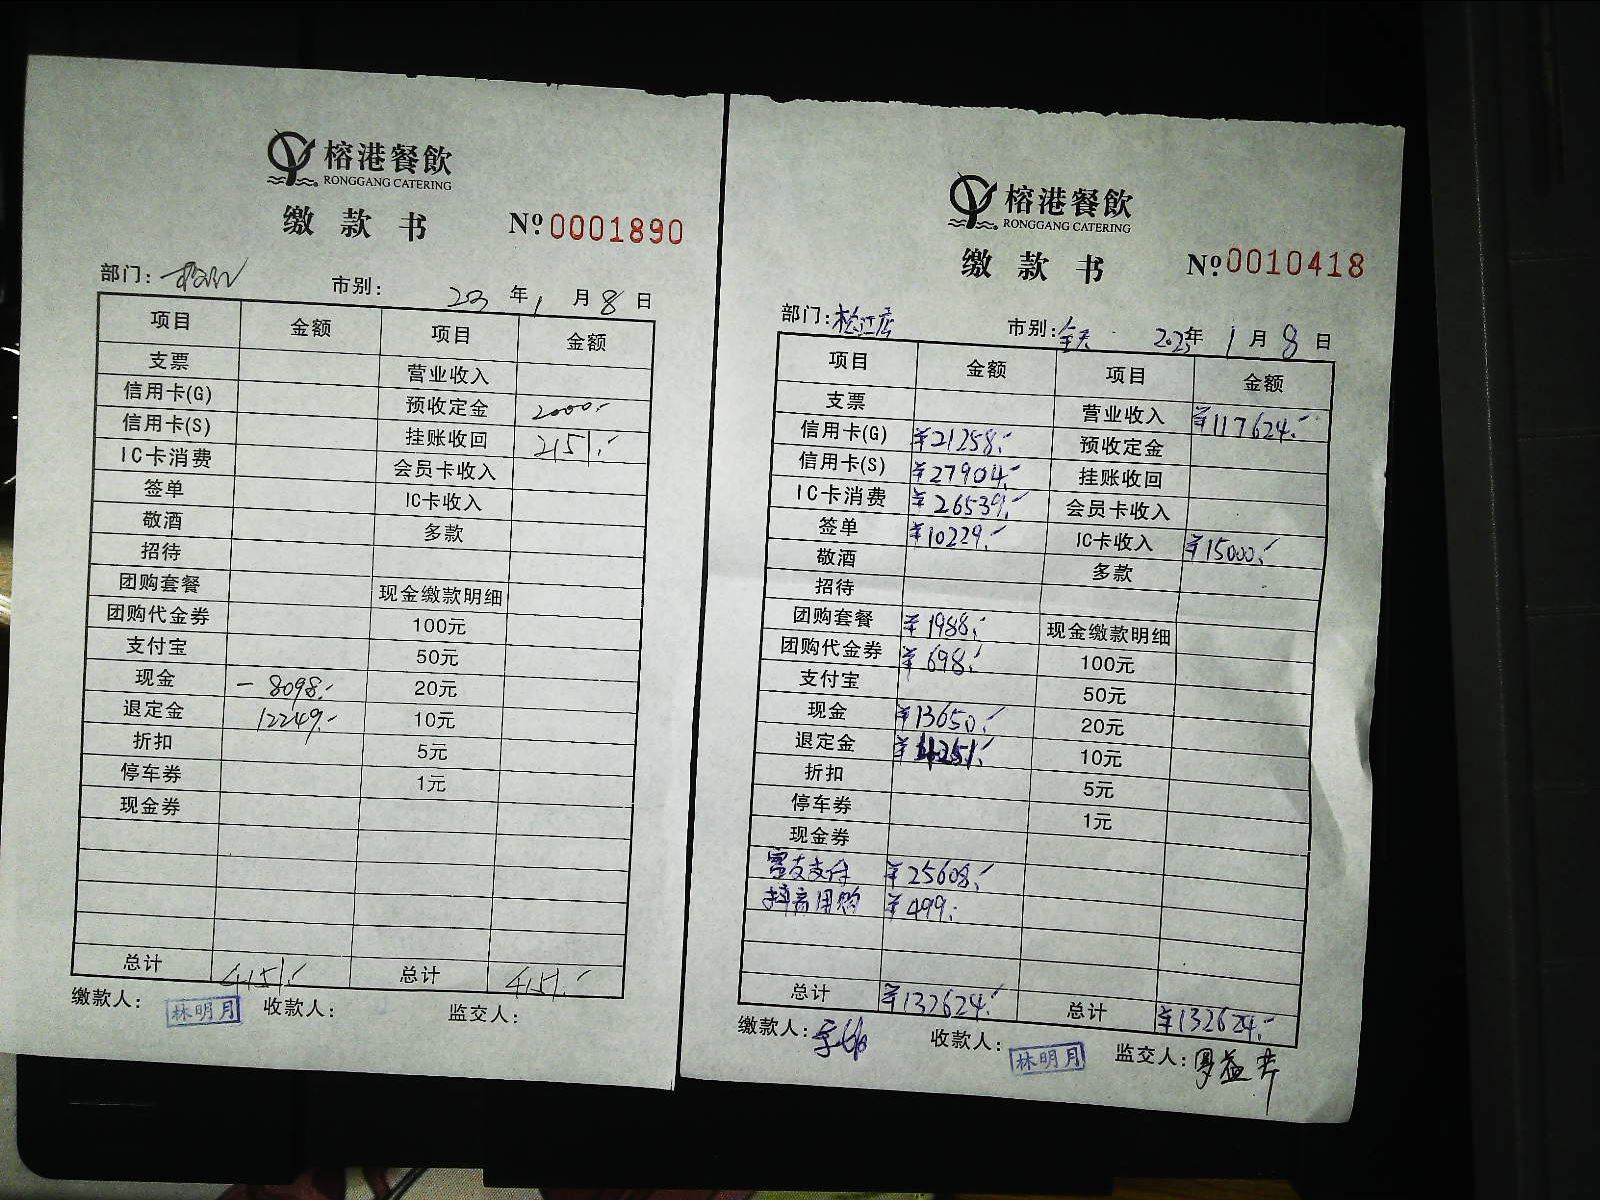 榕港餐飲
RONGGANG CATERING
缴款书 Nº 0001890
部门: 市别: 23年1月8日
项目 金额 项目 金额
支票 营业收入
信用卡(G) 预收定金 2000.-
信用卡(S) 挂账收回 2151.-
IC卡消费 会员卡收入
签单 IC卡收入
敬酒 多款
招待
团购套餐 现金缴款明细
团购代金券 100元
支付宝 50元
现金 -8098.- 20元
退定金 12249.- 10元
折扣 5元
停车券 1元
现金券
总计 4151.- 总计 4151.-
缴款人: 林明月 收款人: 监交人:
榕港餐飲
RONGGANG CATERING
缴款书 Nº 0010418
部门:松江店 市别:全天 2023年1月8日
项目 金额 项目 金额
支票 营业收入 ¥117624.-
信用卡(G) ¥21258.- 预收定金
信用卡(S) ¥27904.- 挂账收回
IC卡消费 ¥26539.- 会员卡收入
签单 ¥10229.- IC卡收入 ¥15000.-
敬酒 多款
招待
团购套餐 ¥1988.- 现金缴款明细
团购代金券 ¥698.- 100元
支付宝 50元
现金 ¥13650.- 20元
退定金 10元
折扣 5元
停车券 1元
现金券
支付 ¥25608.-
抖音团购 ¥499.-
总计 ¥132624.- 总计 ¥132624.-
缴款人: 收款人: 林明月 监交人:罗益芹